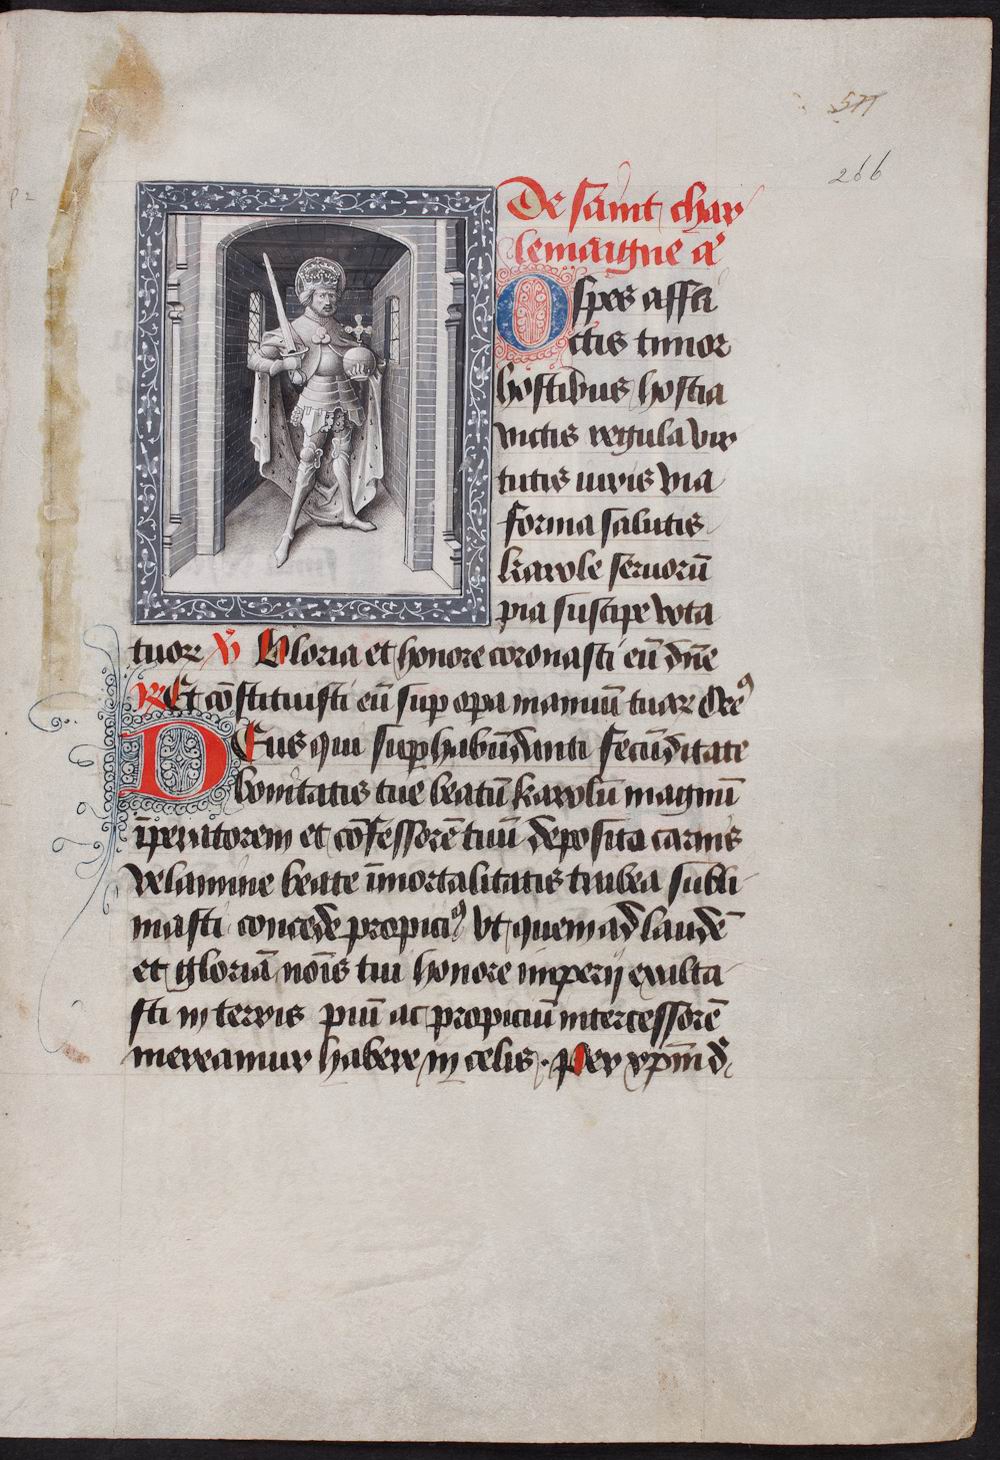 577
266
De saint char
lemaigne añ
O spes affli
ctis timor
hostibus hostia
victis regula vir
tutis iuris via
forma salutis
karole seruorū
pia suscipe vota
tuoꝝ V̾ Gloria et honore coronasti eū dñe
R̾ Et cōstituisti eū sup opa manuū tuaꝝ Orēꝰ
DEus qui suphabūdanti fecūditate
bonitatis tue beatū karolū magnū
īperatorem et cōfessorē tuū deposita carnis
velamine beate īmortalitatis trabea subli
masti concede propiciꝰ vt quem ad laudē
et gloriā noīs tui honore imperij exalta
sti in terris piū ac propiciū intercessorē
mereamur habere in celis. Per xpm̄ d̄